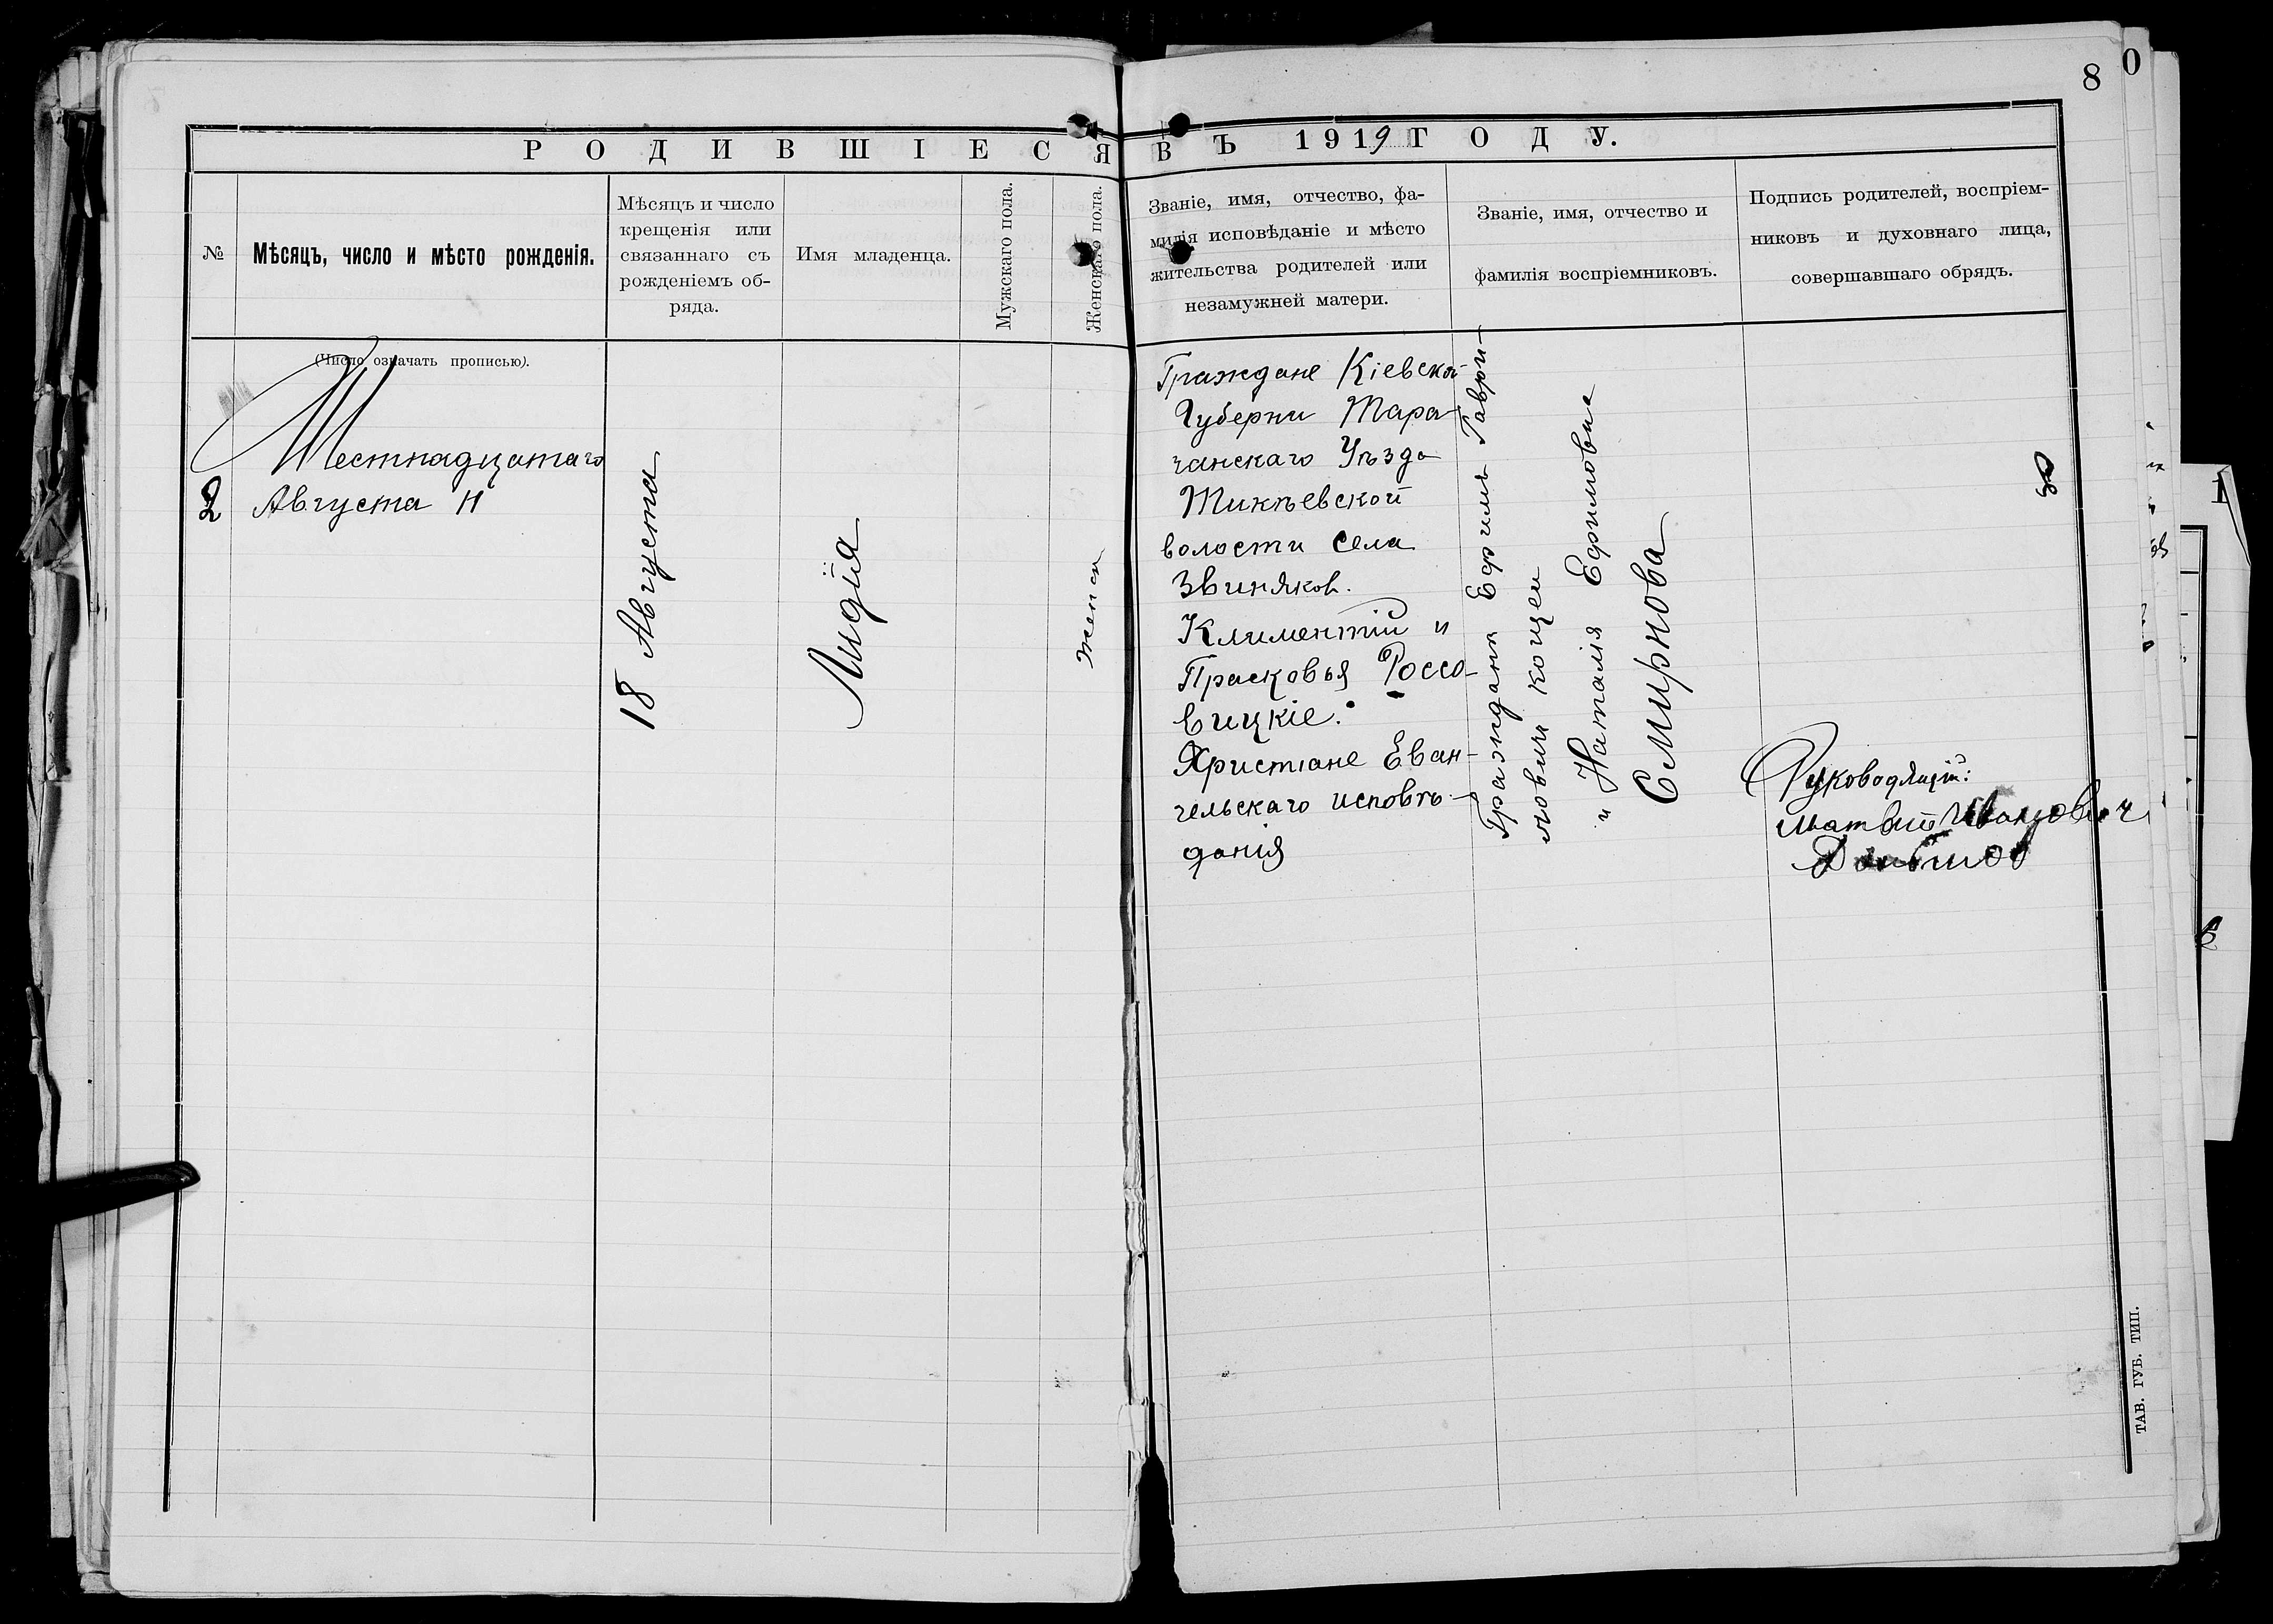 8
0
РОДИВШІЕСЯ ВЪ 1919 ГОДУ.
№
Мѣсяцъ, число и мѣсто рожденія.
Мѣсяцъ и число
крещенія или
связаннаго съ
рожденіемъ об-
ряда.
Имя младенца.
Мужскаго пола.
Женскаго пола.
Званіе, имя, отчество, фа-
милія исповѣданіе и мѣсто
жительства родителей или
незамужней матери.
Званіе, имя, отчество и
фамилія воспріемниковъ.
Подпись родителей, воспріем-
никовъ и духовнаго лица,
совершавшаго обрядъ.
(Число означать прописью).
2
Шестнадцатаго
Августа
18 Августа
Лидія
женск
Граждане Кіевской
Губерни Тара-
чанскаго Уѣзда
Тикѣевской
волости села
Звиняков.
Климентій и
Прасковья Россо-
вицкіе.
Христіане Еван-
гельскаго исповѣ-
данія
Гражданин Ефимъ Гаври-
ловичъ
и Наталія Ефимовна
Смирнова
Руководящій:
Матвій Иванович
ТАВ. ГУБ. ТИП.
1